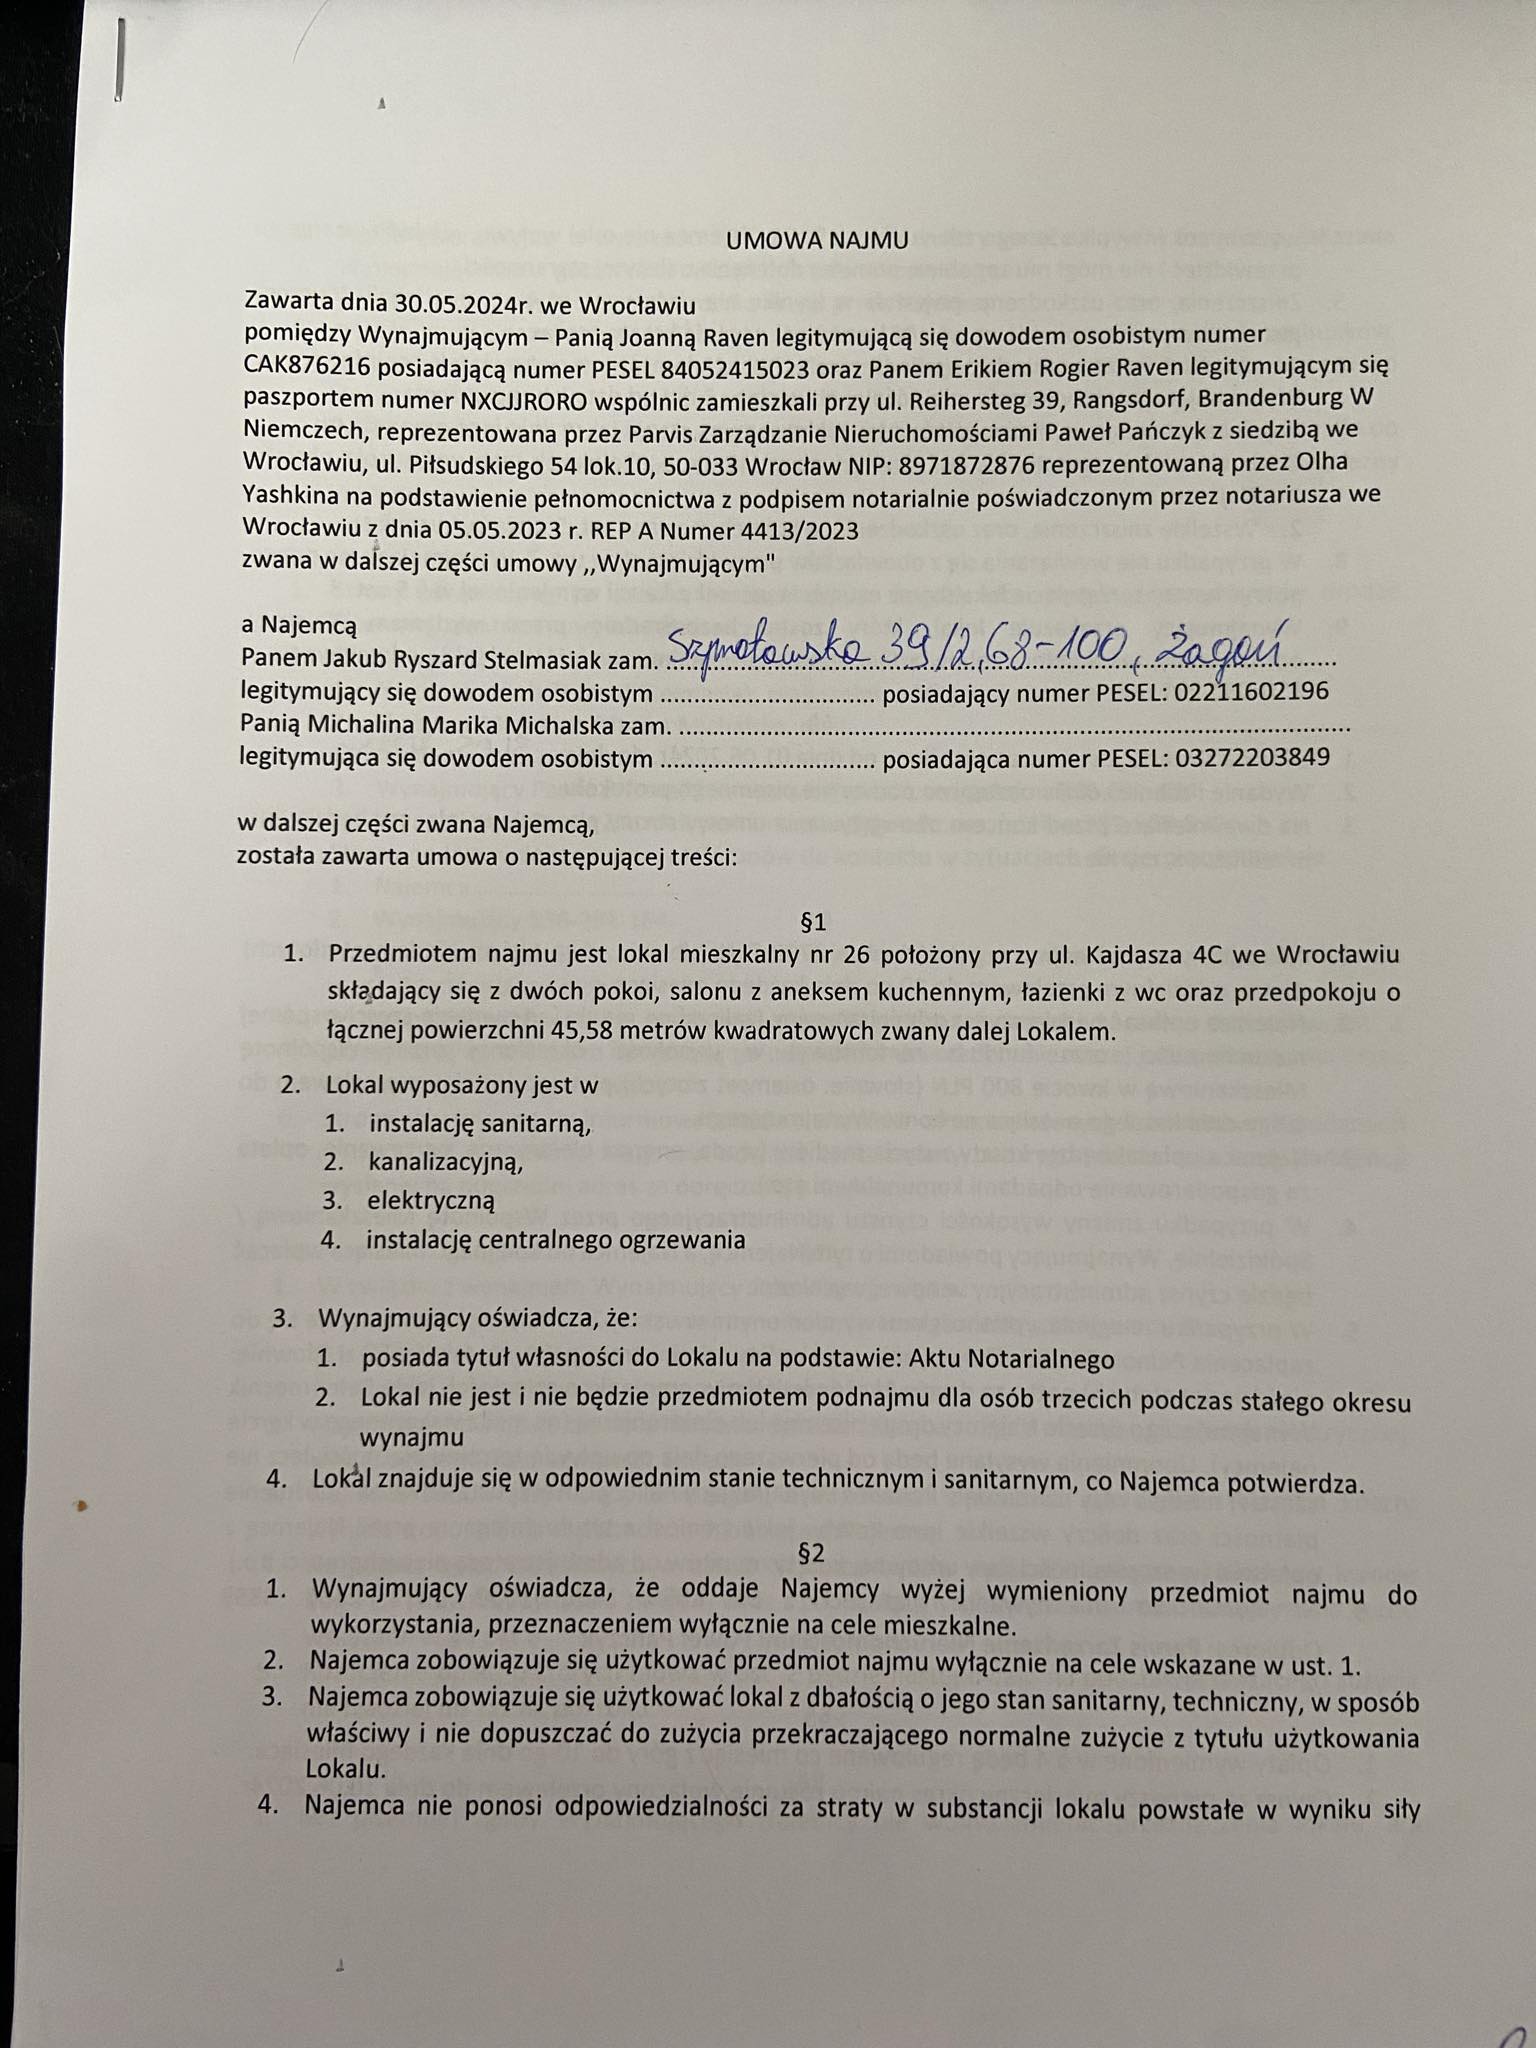 UMOWA NAJMU
Zawarta dnia 30.05.2024r. we Wrocławiu
pomiędzy Wynajmującym – Panią Joanną Raven legitymującą się dowodem osobistym numer
CAK876216 posiadającą numer PESEL 84052415023 oraz Panem Erikiem Rogier Raven legitymującym się
paszportem numer NXCJJRORO wspólnic zamieszkali przy ul. Reihersteg 39, Rangsdorf, Brandenburg W
Niemczech, reprezentowana przez Parvis Zarządzanie Nieruchomościami Paweł Pańczyk z siedzibą we
Wrocławiu, ul. Piłsudskiego 54 lok.10, 50-033 Wrocław NIP: 8971872876 reprezentowaną przez Olha
Yashkina na podstawienie pełnomocnictwa z podpisem notarialnie poświadczonym przez notariusza we
Wrocławiu z dnia 05.05.2023 r. REP A Numer 4413/2023
zwana w dalszej części umowy ,,Wynajmującym"
a Najemcą
Panem Jakub Ryszard Stelmasiak zam. 39/2, 68-100, Żagań
legitymujący się dowodem osobistym .............................. posiadający numer PESEL: 02211602196
Panią Michalina Marika Michalska zam. ..............................................................................................
legitymująca się dowodem osobistym .............................. posiadająca numer PESEL: 03272203849
w dalszej części zwana Najemcą,
została zawarta umowa o następującej treści:
§1
1. Przedmiotem najmu jest lokal mieszkalny nr 26 położony przy ul. Kajdasza 4C we Wrocławiu
składający się z dwóch pokoi, salonu z aneksem kuchennym, łazienki z wc oraz przedpokoju o
łącznej powierzchni 45,58 metrów kwadratowych zwany dalej Lokalem.
2. Lokal wyposażony jest w
1. instalację sanitarną,
2. kanalizacyjną,
3. elektryczną
4. instalację centralnego ogrzewania
3. Wynajmujący oświadcza, że:
1. posiada tytuł własności do Lokalu na podstawie: Aktu Notarialnego
2. Lokal nie jest i nie będzie przedmiotem podnajmu dla osób trzecich podczas stałego okresu
wynajmu
4. Lokal znajduje się w odpowiednim stanie technicznym i sanitarnym, co Najemca potwierdza.
§2
1. Wynajmujący oświadcza, że oddaje Najemcy wyżej wymieniony przedmiot najmu do
wykorzystania, przeznaczeniem wyłącznie na cele mieszkalne.
2. Najemca zobowiązuje się użytkować przedmiot najmu wyłącznie na cele wskazane w ust. 1.
3. Najemca zobowiązuje się użytkować lokal z dbałością o jego stan sanitarny, techniczny, w sposób
właściwy i nie dopuszczać do zużycia przekraczającego normalne zużycie z tytułu użytkowania
Lokalu.
4. Najemca nie ponosi odpowiedzialności za straty w substancji lokalu powstałe w wyniku siły